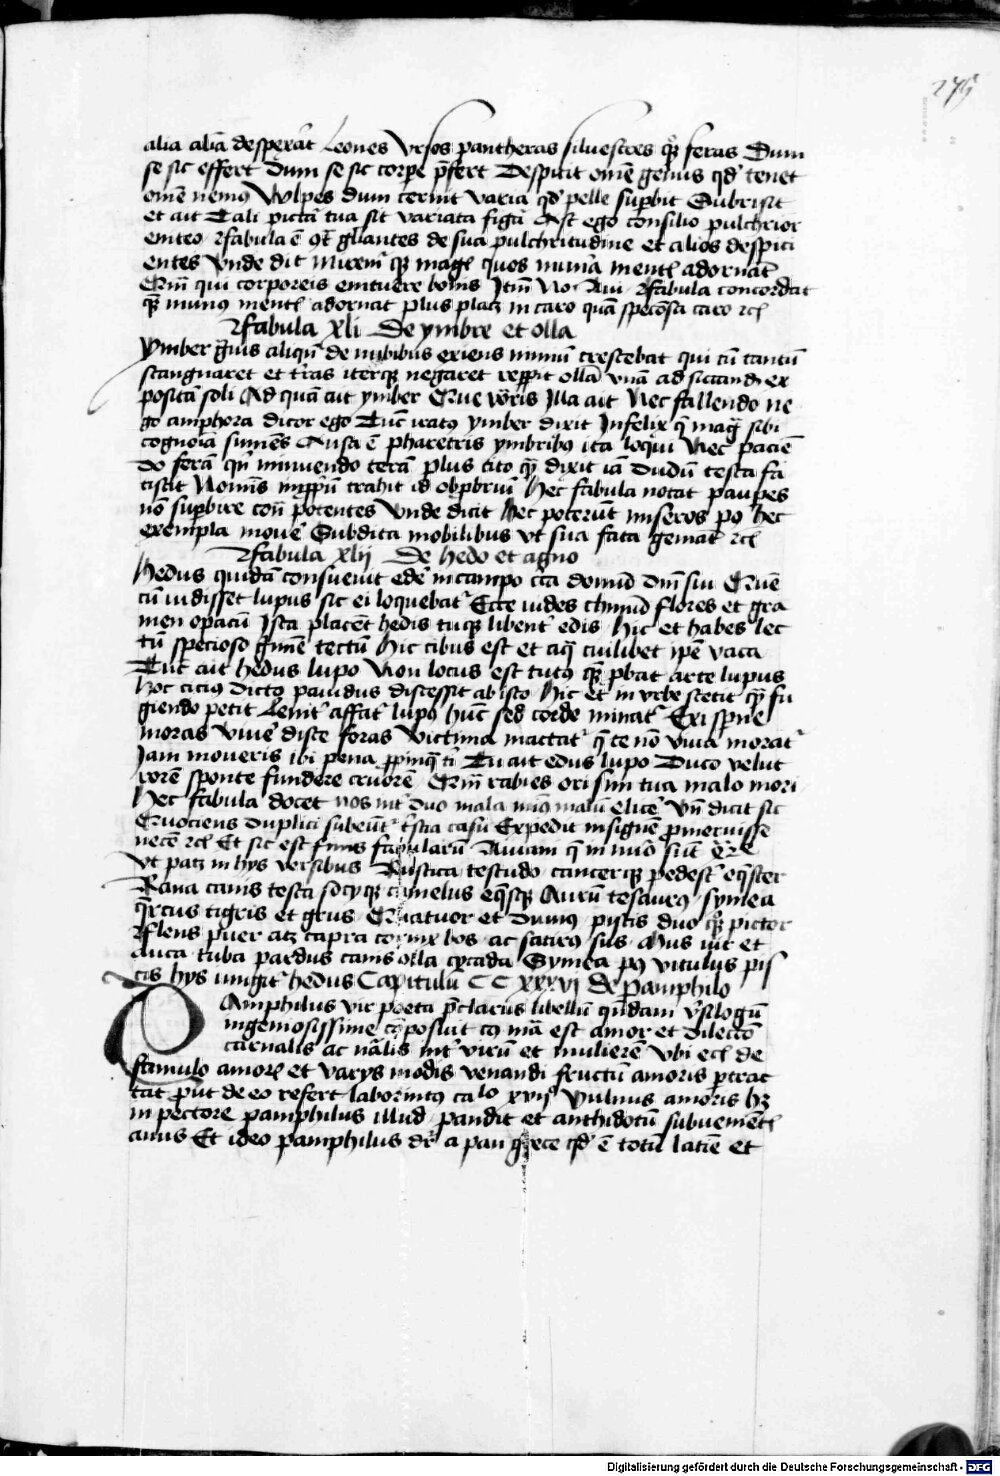 275
alia aliā desperat Leones Vrsos pantheras silvestres qꝫ feras Dum
se sic effert Dum se sic corpe p̄fert Despicit om̄e genus qd̓ tenet
om̄e nemꝰ Vulpes dum cernit varia qd̓ pelle supbit Subrisit
et ait Tali pictā tua sit variata figā Ast ego consilio pulchrior
emiteo Ffabula ē ꝯt̄ gl̄iantes de sua pulchritudine et alios despici
entes Vnde dit Mirem̄ qꝫ magꝭ quos mun̄a mentꝭ adornāt
Qm̄ qui corporeis emituere bonis Itm̄ No Aui Ffabula concordat
qꝫ munꝰ mentꝭ adornat plus placꝫ in caro quā speciosa caro rcꝭ
Ffabula xli De ymbre et olla
Ymber ḡuis aliqn̄ de nubibus exiens nimiū crescebat qui cū tantū
stangnaret et tr̄as iterqꝫ negaret reppit ollā vnā ad siccandū ex
positā soli Ad quā ait ymber Que voc̄ris Illa ait Nec fallendo ne
go amphora dicor ego Tūc iratꝰ ymber dixit Infelix q̄ mag̓ sibi
cognoīa sumēs Ausa ē pharetris ymbribꝰ ita loqui Nec paciē
do ferā qn̄ minuendo terā plus cito qꝫ dixit iā dudū testa fa
tiscit Nominis impp̄iū trahit id obprobriū Hec fabula notat paupes
nō supbire con̄ potentes Vnde dicit Hec poterūt miseros pꝰ hec
exempla mouē Subdita mobilibus vt sua fata gemāt rcꝭ
Ffabula xlij De hedo et agno
Hedus quidā consuevit edē in campo c̄ca domū dm̄ sui Quē
cū vidisset lupus sic ei loquebat̓ Ecce vides flores et gra
men opacū Ista placēt hedis tuqꝫ libent̓ edis Hic et habes lec
tū specioso gͥmīe tectū Hic cibus est et aq̄ cuilibet ip̄e vaca
Tūc ait hedus lupo Non locus est tutꝰ qꝫ pbat arte lupus
Hoc cicius dicto pauidus discessit ab isto Hic et in vrbe stetit qꝫ fu
giendo petit Lenit̓ affat̓ lupꝰ hūc sed corde minat̓ Exi sperne
moras viuē disce foras Victima mactat̓ q̄ te nō viuā morat̓
Iam moueris ibi pena ppinq̄ tͥ Tu ait edus lupo Duco velut
rorē sponte fundere cruorē Qm̄ rabies ori sim tua malo mori
Hec fabula docet nos int̓ duo mala minꝰ malū elicē Vn̄ dicit sic
Quociens duplici subeūt̓ tͥstia casu Expedit insignē pmeruisse
necē rcꝭ Et sic est finis fabularū Auiani q̄ in nūo sūt
vt patꝫ in hys versibus Rustica testudo cancerqꝫ pedest̓ eq̄ster
Rana canis testa socyqꝫ camelus eq̄sqꝫ Aurū tesaurꝰ symea
q̄rcus tigris et grus Quatuor et dumꝰ piscis duo qꝫ pictor
Fflens puer atꝫ capra cornix bos ac satirus sus Mus iūc et
auca tuba pardus canis olla cycada Symea pꝰ vitulus pis
cis hys iungit̓ hedus Capitulū CC xxxvi De pamphilo
Pamphilus vir poeta p̄clarus libellū quēdam
ingeniosissime cōposuit cꝰ mā est amor et dilectō
carnalis ac nālis int̓ virū et mulierē Vbi ecꝭ de
stimulo amorꝭ et varys modis venandi fructū amoris ptrac
tat put de eo refert laborintꝰ calo xviꝰ Vulnus amoris hꝫ
in pectore pamphilus illud pandit et anthidotū subuementꝭ
anus Et ideo pamphilus dr̄ a pan grece qd̓ ē totū latīe et
Digitalisierung gefördert durch die Deutsche Forschungsgemeinschaft - DFG